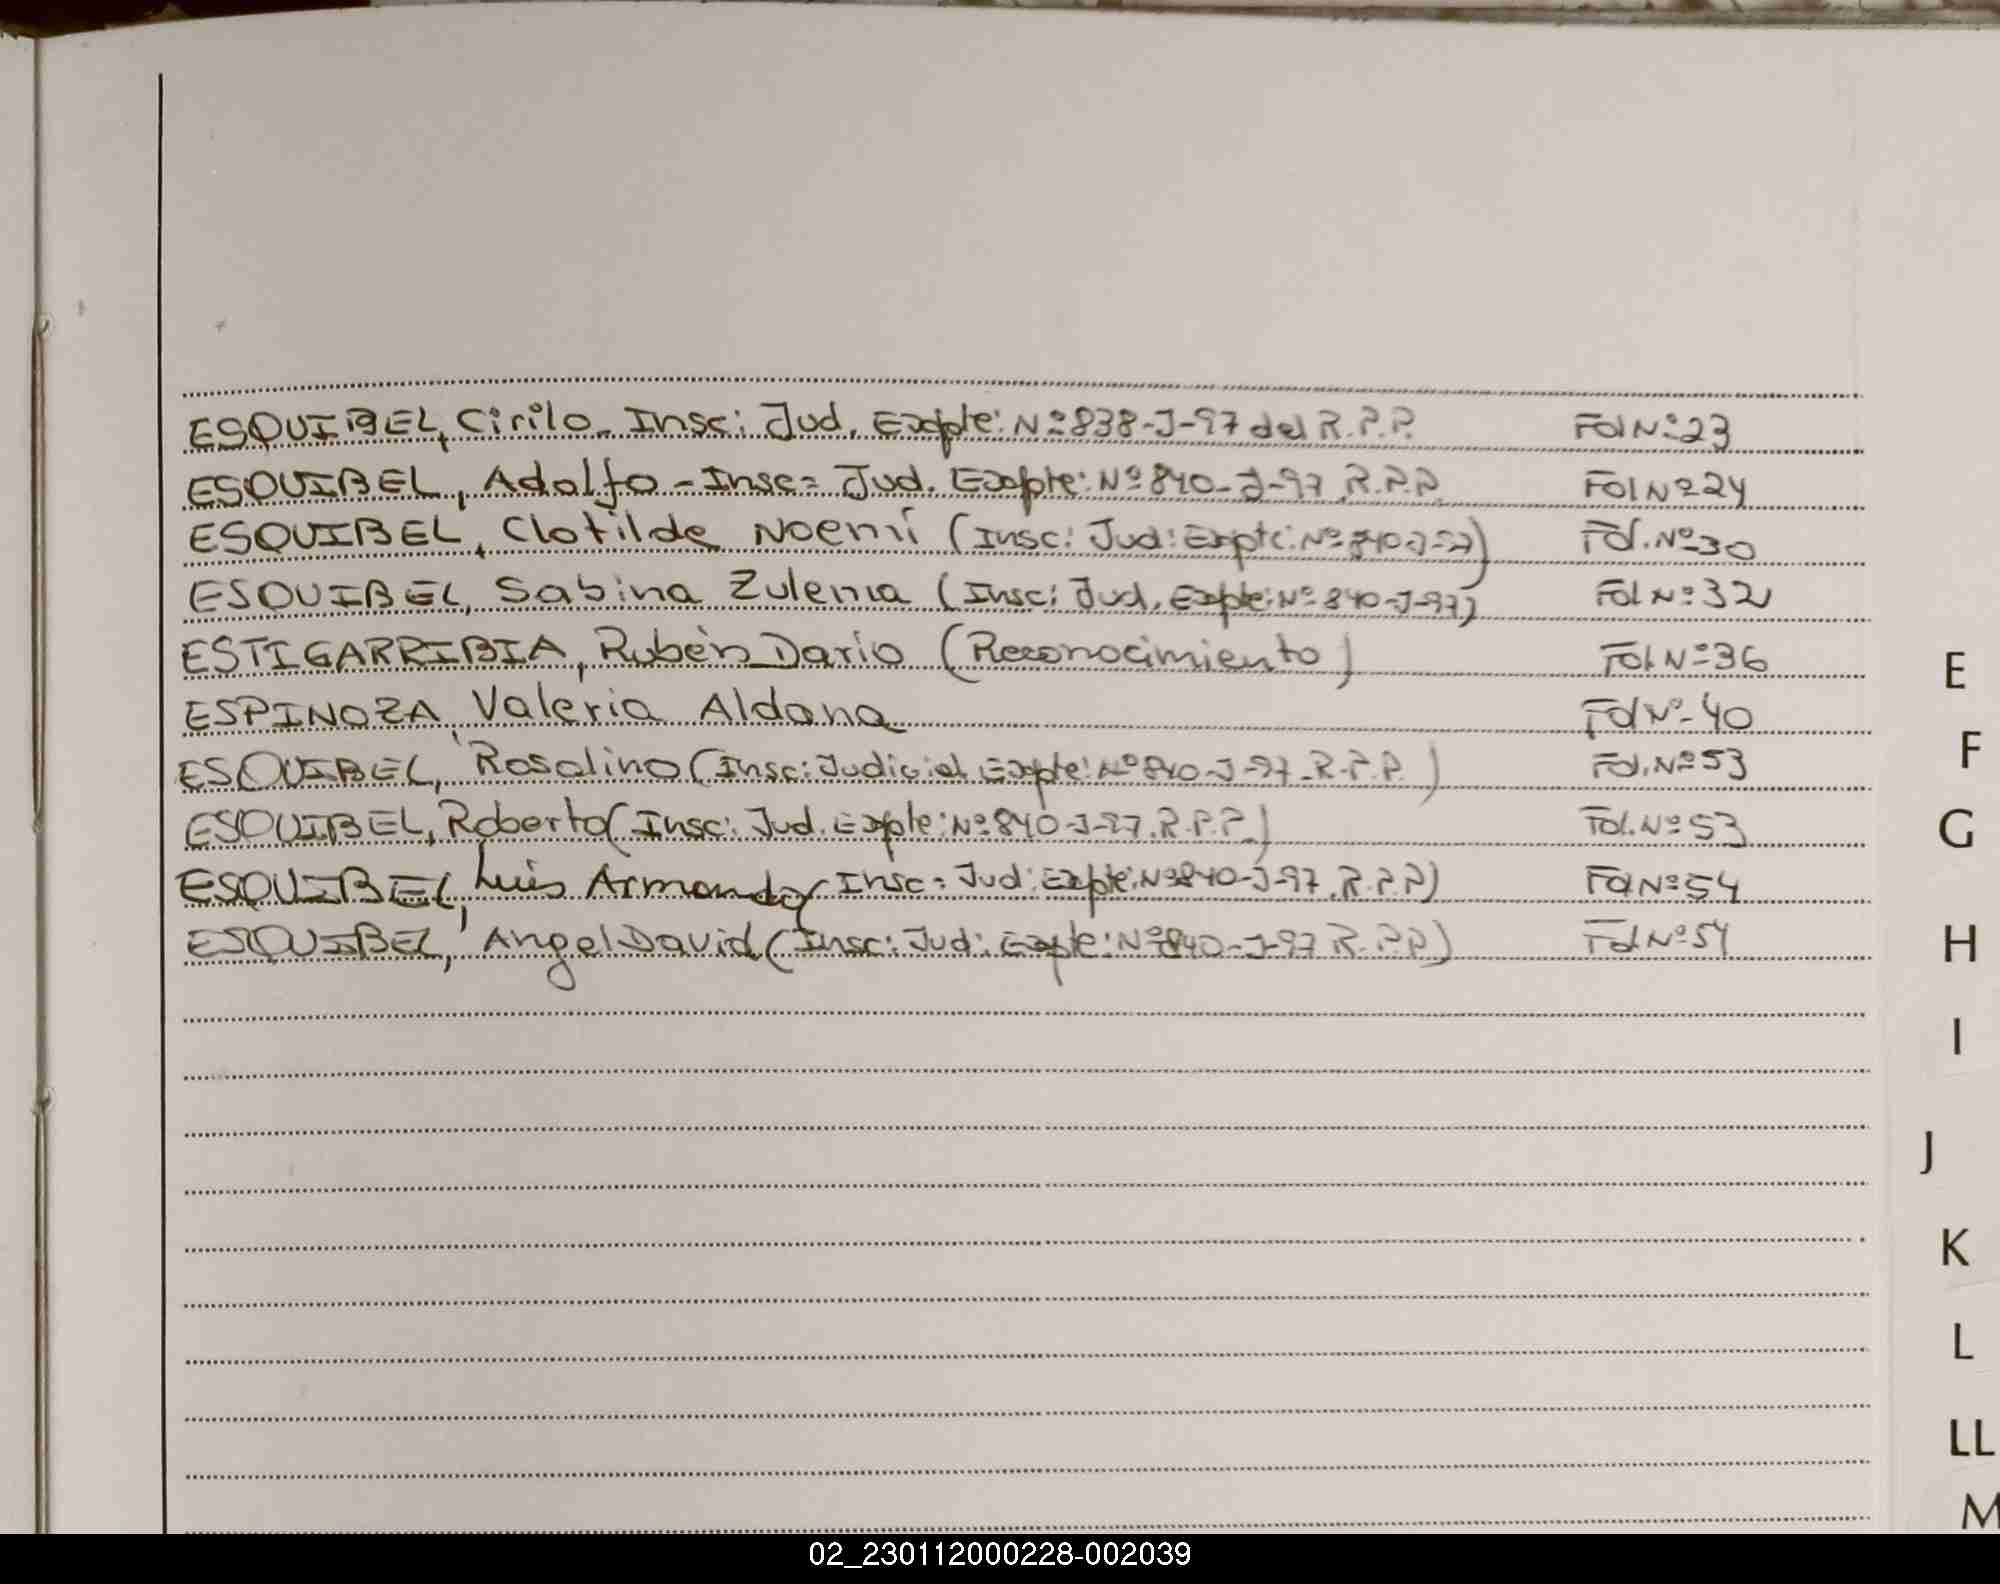 ESQUIBEL, Cirilo. Insc: Jud. Expte: Nº 838-J-97 del R.P.P. Fol Nº 23
ESQUIBEL, Adolfo - Insc= Jud. Expte: Nº 840-J-97 R.P.P. Fol Nº 24
ESQUIBEL, Clotilde Noemí (Insc: Jud: Expte: Nº 840-J-97) Fol. Nº 30
ESQUIBEL, Sabina Zulema (Insc: Jud. Expte: Nº 840-J-97) Fol Nº 32
ESTIGARRIBIA, Rubén Dario (Reconocimiento) Fol. Nº 36
ESPINOZA, Valeria Aldana Fol Nº 40
ESQUIBEL, Rosalino (Insc: Judicial Expte: Nº 840-J-97 R.P.P.) Fol. Nº 53
ESQUIBEL, Roberto (Insc: Jud. Expte: Nº 840-J-97. R.P.P.) Fol. Nº 53
ESQUIBEL, Luis Armando (Insc= Jud: Expte: Nº 840-J-97. R.P.P) Fol Nº 54
ESQUIBEL, Angel David (Insc: Jud: Expte: Nº 840-J-97 R.P.P) Fol Nº 54
E
F
G
H
I
J
K
L
LL
M
02_230112000228-002039